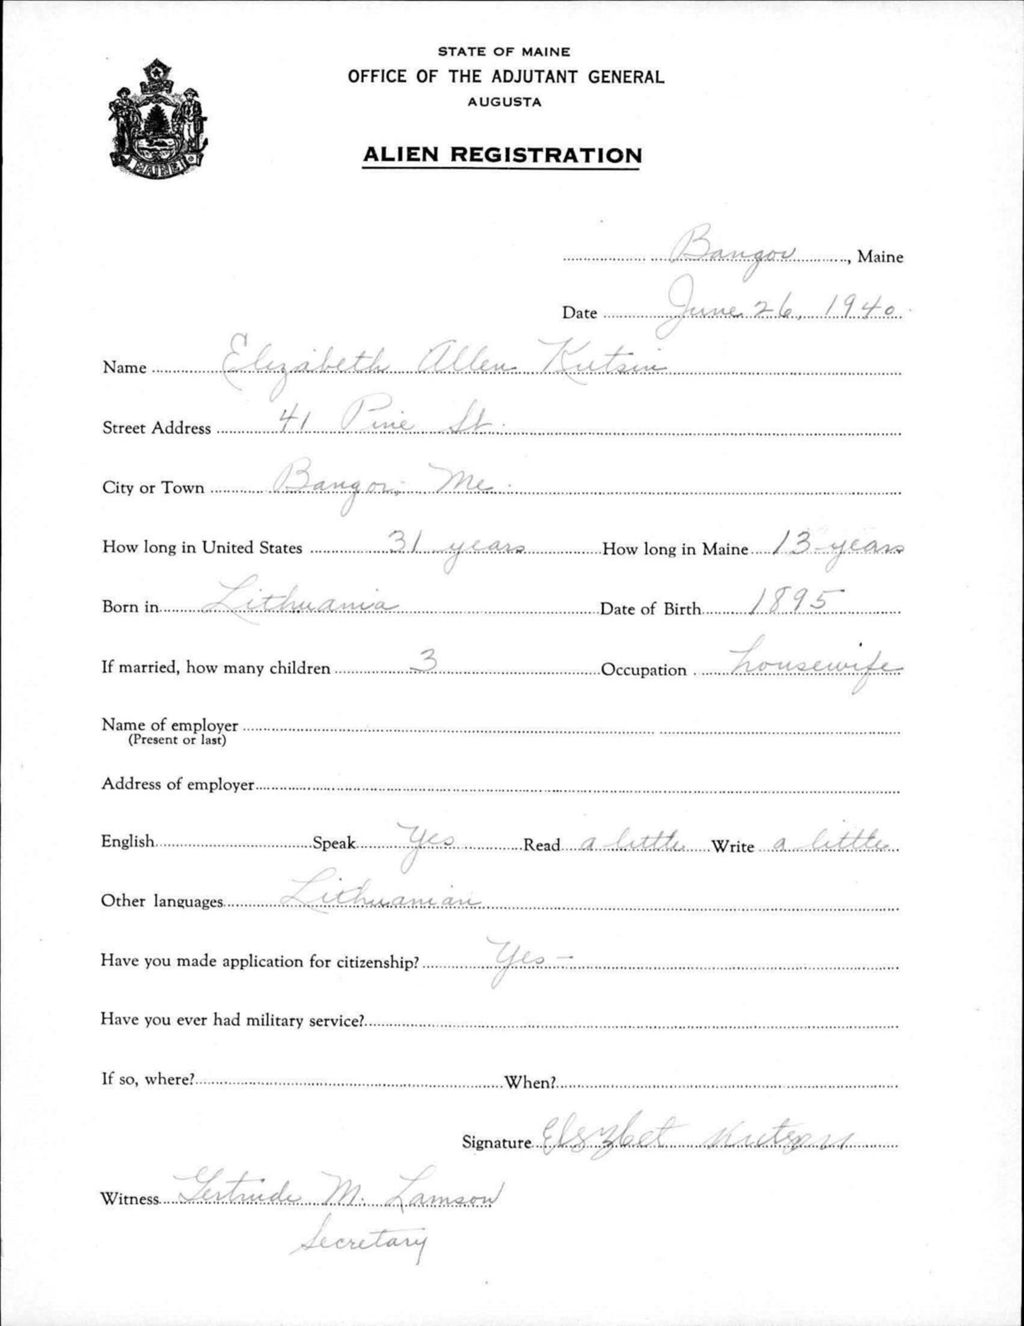 STATE OF MAINE
OFFICE OF THE ADJUTANT GENERAL
AUGUSTA
ALIEN REGISTRATION
MAINE
Bangor, Maine
Date June 26, 1940.
Name Elizabeth Allen Kutsin
Street Address 41 Pine St.
City or Town Bangor, Me.
How long in United States 31 years How long in Maine 13 years
Born in Lithuania Date of Birth 1895
If married, how many children 3 Occupation housewife
Name of employer
(Present or last)
Address of employer
English Speak Yes Read a little Write a little
Other languages Lithuanian
Have you made application for citizenship? Yes –
Have you ever had military service?
If so, where? When?
Signature
Witness Gertrude M. Lamson
Secretary